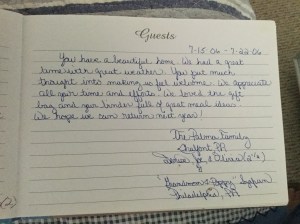 Guests
7-15-06 - 7-22-06
You have a beautiful home. We had a great
time with great weather. You put much
thought into making us feel welcome. We appreciate
all your time and efforts. We loved the gift
bag and your binder full of great meal ideas.
We hope we can return next year!
The Palma Family
Chalfont, PA
Denise, Joe & (2 1/2)
"Grandmom & Poppy"
Philadelphia, PA